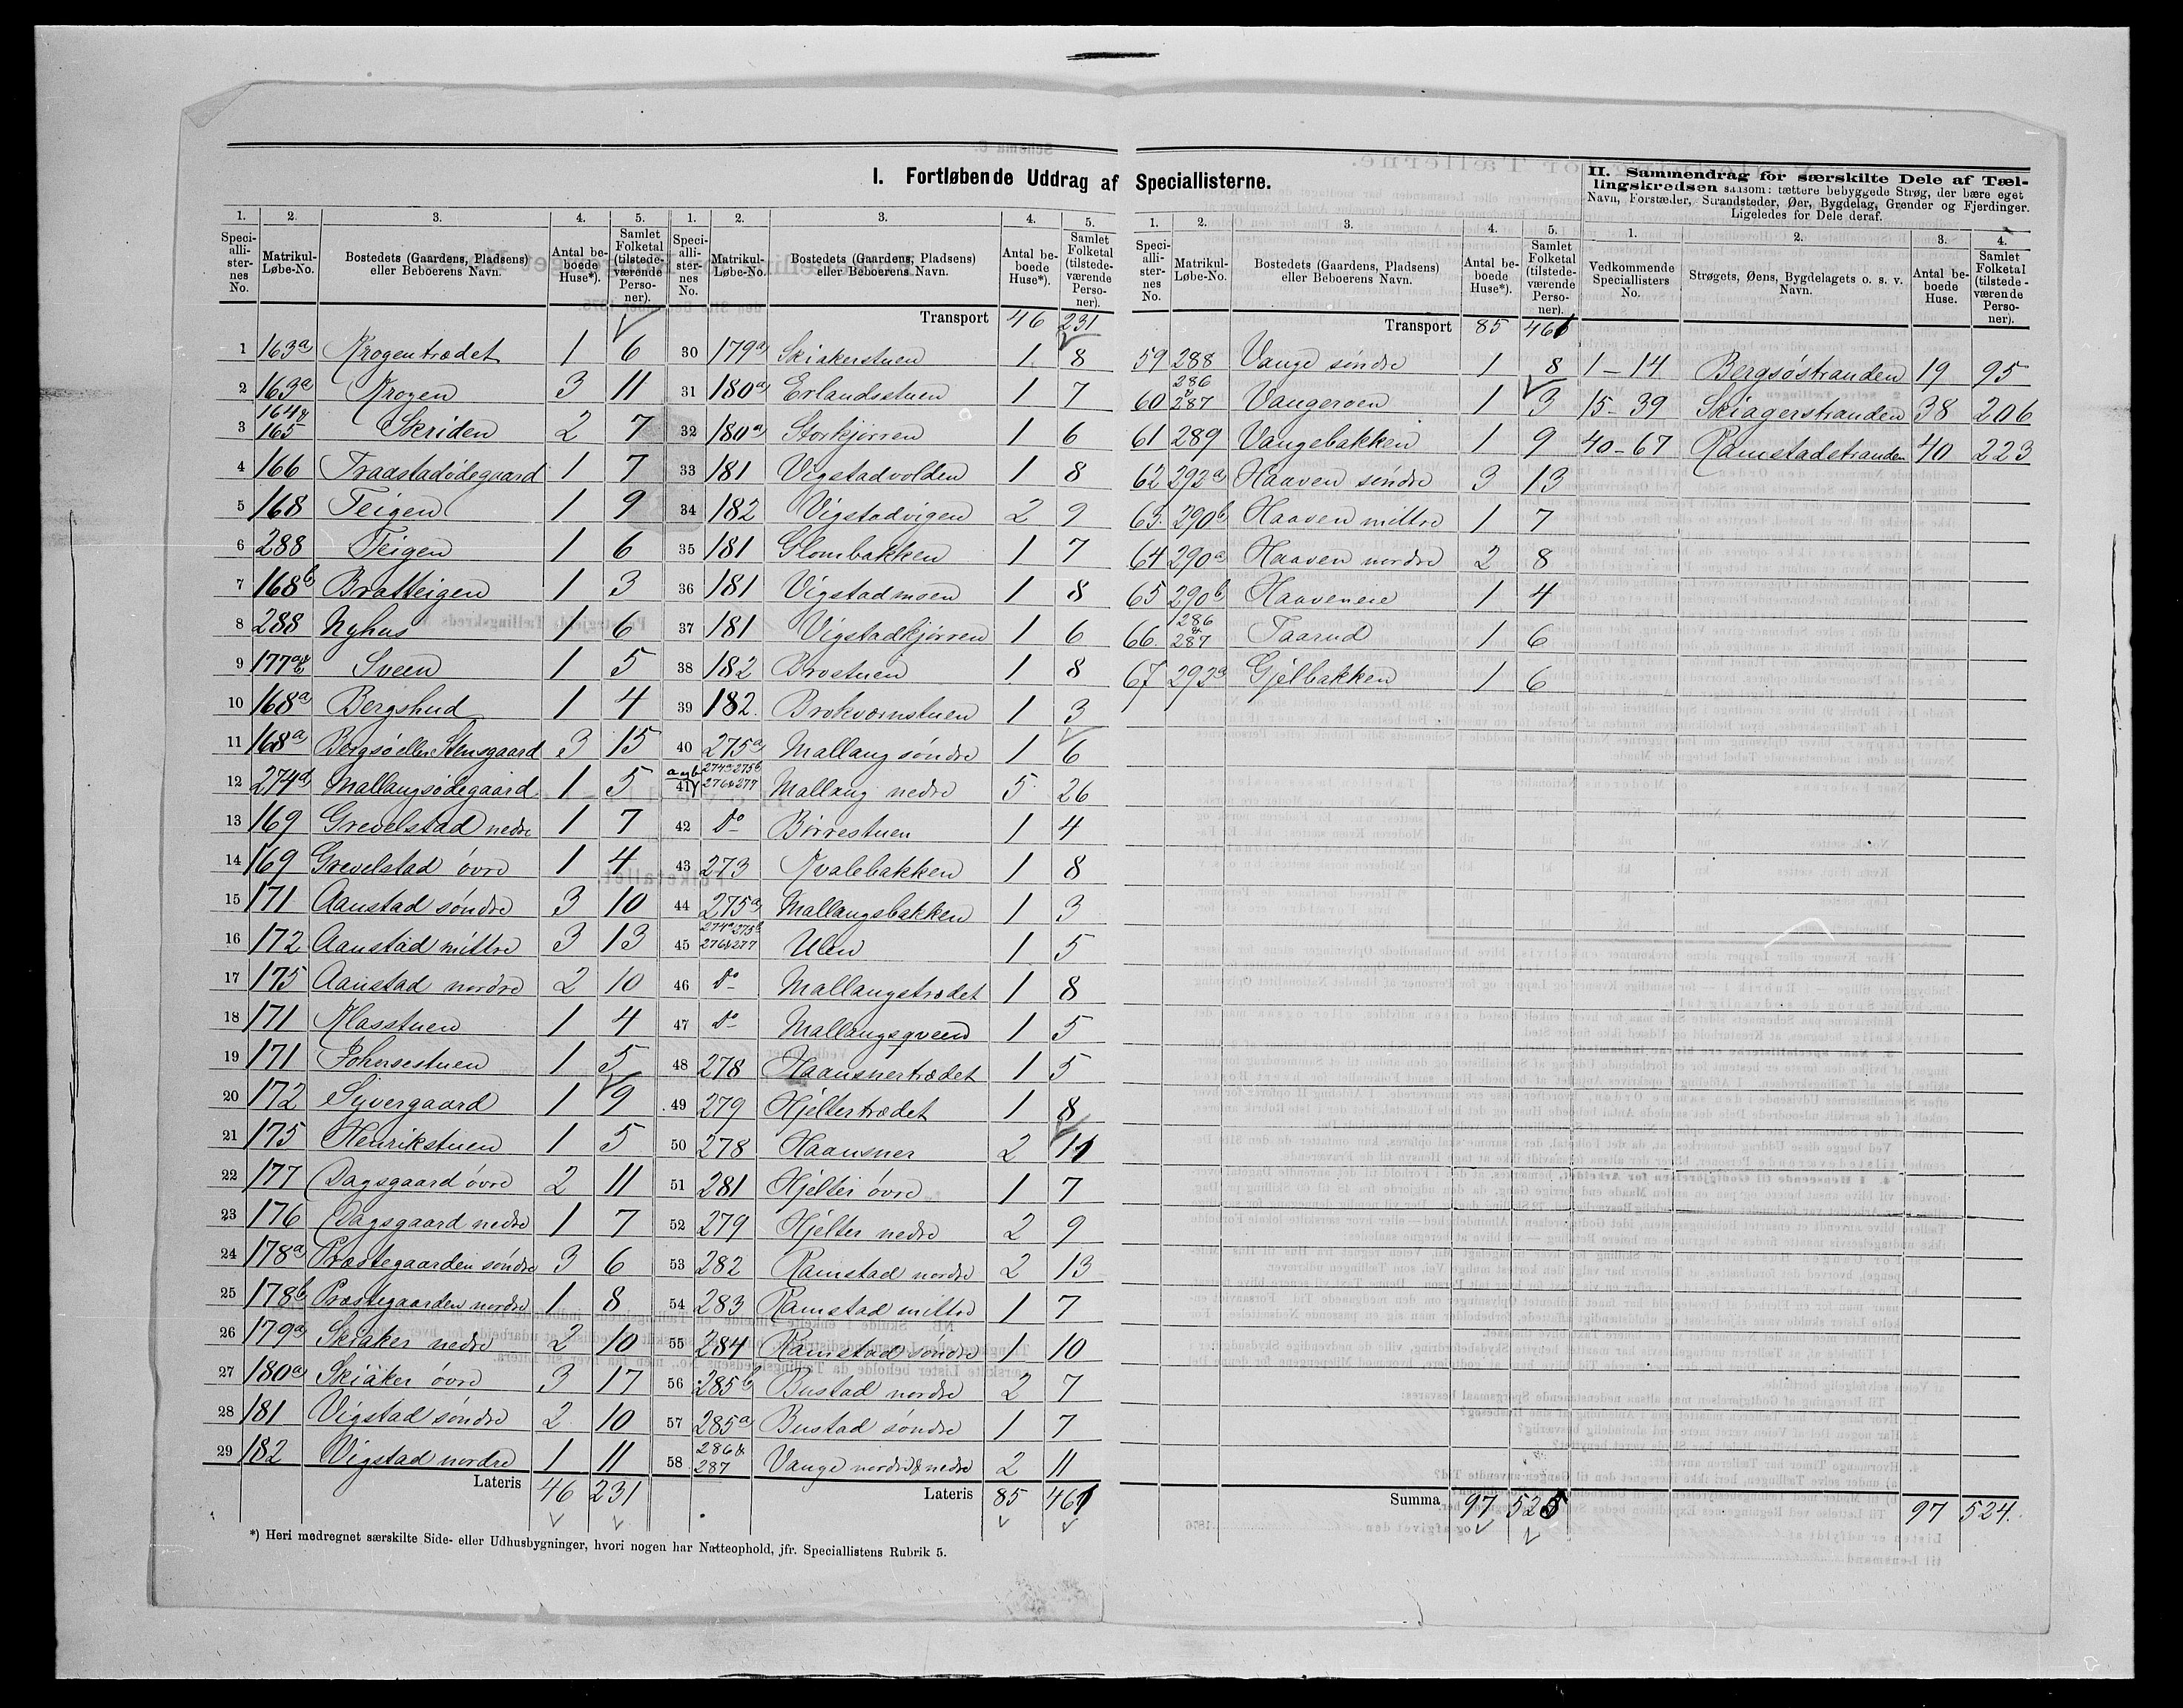 I. Fortløbende Uddrag af Speciallisterne.
1. 2. 3. 4. 5.
Speciallisternes No. Matrikul-Løbe-No. Bostedets (Gaardens, Pladsens) eller Beboerens Navn. Antal beboede Huse*). Samlet Folketal (tilstedeværende Personer).
1 163a Krogentrædet 1 6
2 163a Krogen 3 11
3 164 & 165 Skriden 2 7
4 166 Fraastadødegaard 1 7
5 168 Teigen 1 9
6 288 Teigen 1 6
7 168b Bratteigen 1 3
8 288 Nyhus 1 6
9 177a&b Sveen 1 5
10 168a Bergshud 1 4
11 168a Bergsø eller Stensgaard 3 15
12 274a Mallangsødegaard 1 5
13 169 Grevelstad nedre 1 7
14 169 Grevelstad øvre 1 4
15 171 Aanstad søndre 3 10
16 172 Aanstad mittre 3 13
17 175 Aanstad nordre 2 10
18 171 Klasstuen 1 4
19 171 Johnsestuen 1 5
20 172 Syvergaard 1 9
21 175 Henrikstuen 1 5
22 177 Dagsgaard øvre 2 11
23 176 Dagsgaard nedre 1 7
24 178a Præstegaarden søndre 3 6
25 178b Præstegaarden nordre 1 8
26 179a Skiaker nedre 2 10
27 180a Skiaker øvre 3 17
28 181 Vigstad søndre 2 10
29 182 Vigstad nordre 1 11
Lateris 46 231
*) Heri medregnet særskilte Side- eller Udhusbygninger, hvori nogen har Natteophold, jfr. Speciallistens Rubrik 5.
1. 2. 3. 4. 5.
Speciallisternes No. Matrikul-Løbe-No. Bostedets (Gaardens, Pladsens) eller Beboerens Navn. Antal beboede Huse*). Samlet Folketal (tilstedeværende Personer).
Transport 46 231
30 179a Skiakerstuen 1 8
31 180a Erlandsstuen 1 7
32 180a Storkjørren 1 6
33 181 Vigstadvolden 1 8
34 182 Vigstadvigen 2 9
35 181 Glombakken 1 7
36 181 Vigstadmoen 1 8
37 181 Vigstadkjørren 1 6
38 182 Brostuen 1 8
39 182. Brokværnstuen 1 3
40 275a Mallang søndre 1 6
41 a og b 274a 275b 276 & 277 Mallang nedre 5 26
42 do Børrestuen 1 4
43 273 Kvalebakken 1 8
44 275a Mallangsbakken 1 3
45 274a 275b 276 & 277 Ulen 1 5
46 do Mallangstrædet 1 8
47 do Mallangsqveen 1 5
48 278 Haansnertrædet 1 5
49 279 Hjeltertrædet 1 8
50 278 Haansner 2 11
51 281 Hjelter øvre 1 7
52 279 Hjelter nedre 2 9
53 282 Ramstad nordre 2 13
54 283 Ramstad mittre 1 7
55 284 Ramstad søndre 1 10
56 285b Bustad nordre 2 7
57 285a Bustad søndre 1 7
58 286 & 287 Vange nordre & nedre 2 11
Lateris 85 461
1. 2. 3. 4. 5.
Speciallisternes No. Matrikul-Løbe-No. Bostedets (Gaardens, Pladsens) eller Beboerens Navn. Antal beboede Huse*). Samlet Folketal (tilstedeværende Personer).
Transport 85 461
59 288 Vange søndre 1 8
60 286 & 287 Vangeroen 1 3
61 289 Vangebakken 1 9
62 292a Haaven søndre 3 13
63. 290b Haaven mittre 1 7
64 290a Haaven nordre 2 8
65 290b Haaveneie 1 4
66. 286 & 287 Taarud 1 6
67 292a Gjelbakken 1 6
Summa 97 525
II. Sammendrag for særskilte Dele af Tællingskredsen saasom: tættere bebyggede Strøg, der bære eget Navn, Forstæder, Strandsteder, Øer, Bygdelag, Grender og Fjerdinger. Ligeledes for Dele deraf.
1. 2. 3. 4.
Vedkommende Speciallisters No. Strøgets, Øens, Bygdelagets o. s. v. Navn. Antal beboede Huse. Samlet Folketal (tilstedeværende Personer).
1-14 Bergsøstranden 19 95
15-39 Skiagerstranden 38 206
40-67 Ramstadstranden 40 223
97 524.